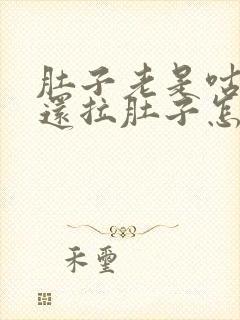 肚子老是咕
還拉肚子怎
禾璽